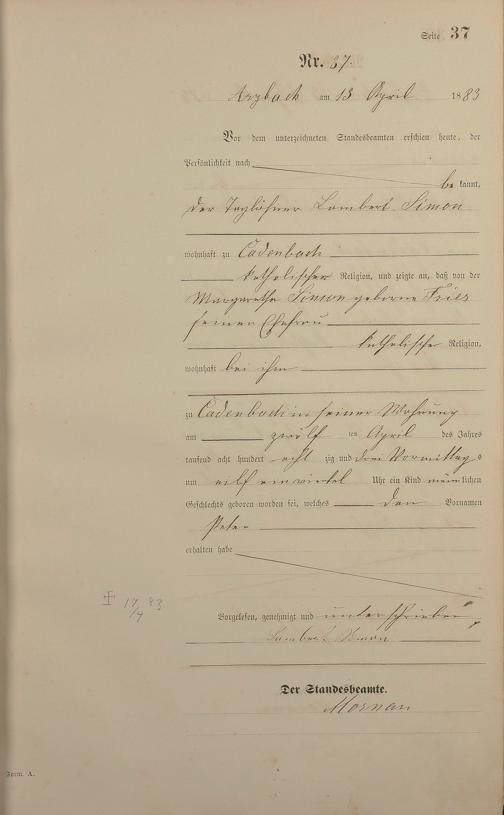 Seite 37
Nr. 37.
Arzbach am 13 April 1883
Vor dem unterzeichneten Standesbeamten erschien heute, der
Persönlichkeit nach
be kannt,
der Taglöhner Lambert Simon
wohnhaft zu Cadenbach
katholischer Religion, und zeigte an, daß von der
Margaretha Simon geborne Fries
seiner Ehefrau
katholischer Religion,
wohnhaft bei ihm
zu Cadenbach in seiner Wohnung
am zwölf ten April des Jahres
tausend acht hundert acht zig und drei Vormittags
um eilf ein viertel Uhr ein Kind männlichen
Geschlechts geboren worden sei, welches den Vornamen
Peter
erhalten habe
17/4 83
Vorgelesen, genehmigt und unterschrieben
Lambert Simon
Der Standesbeamte.
Form. A.